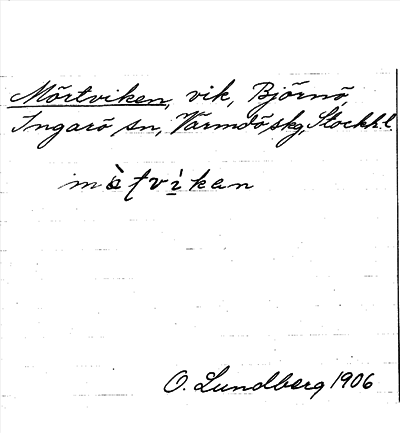 Mörtviken, vik, Björnö,
Ingarö sn, Värmdö skg, Stockh.l.
O. Lundberg 1906